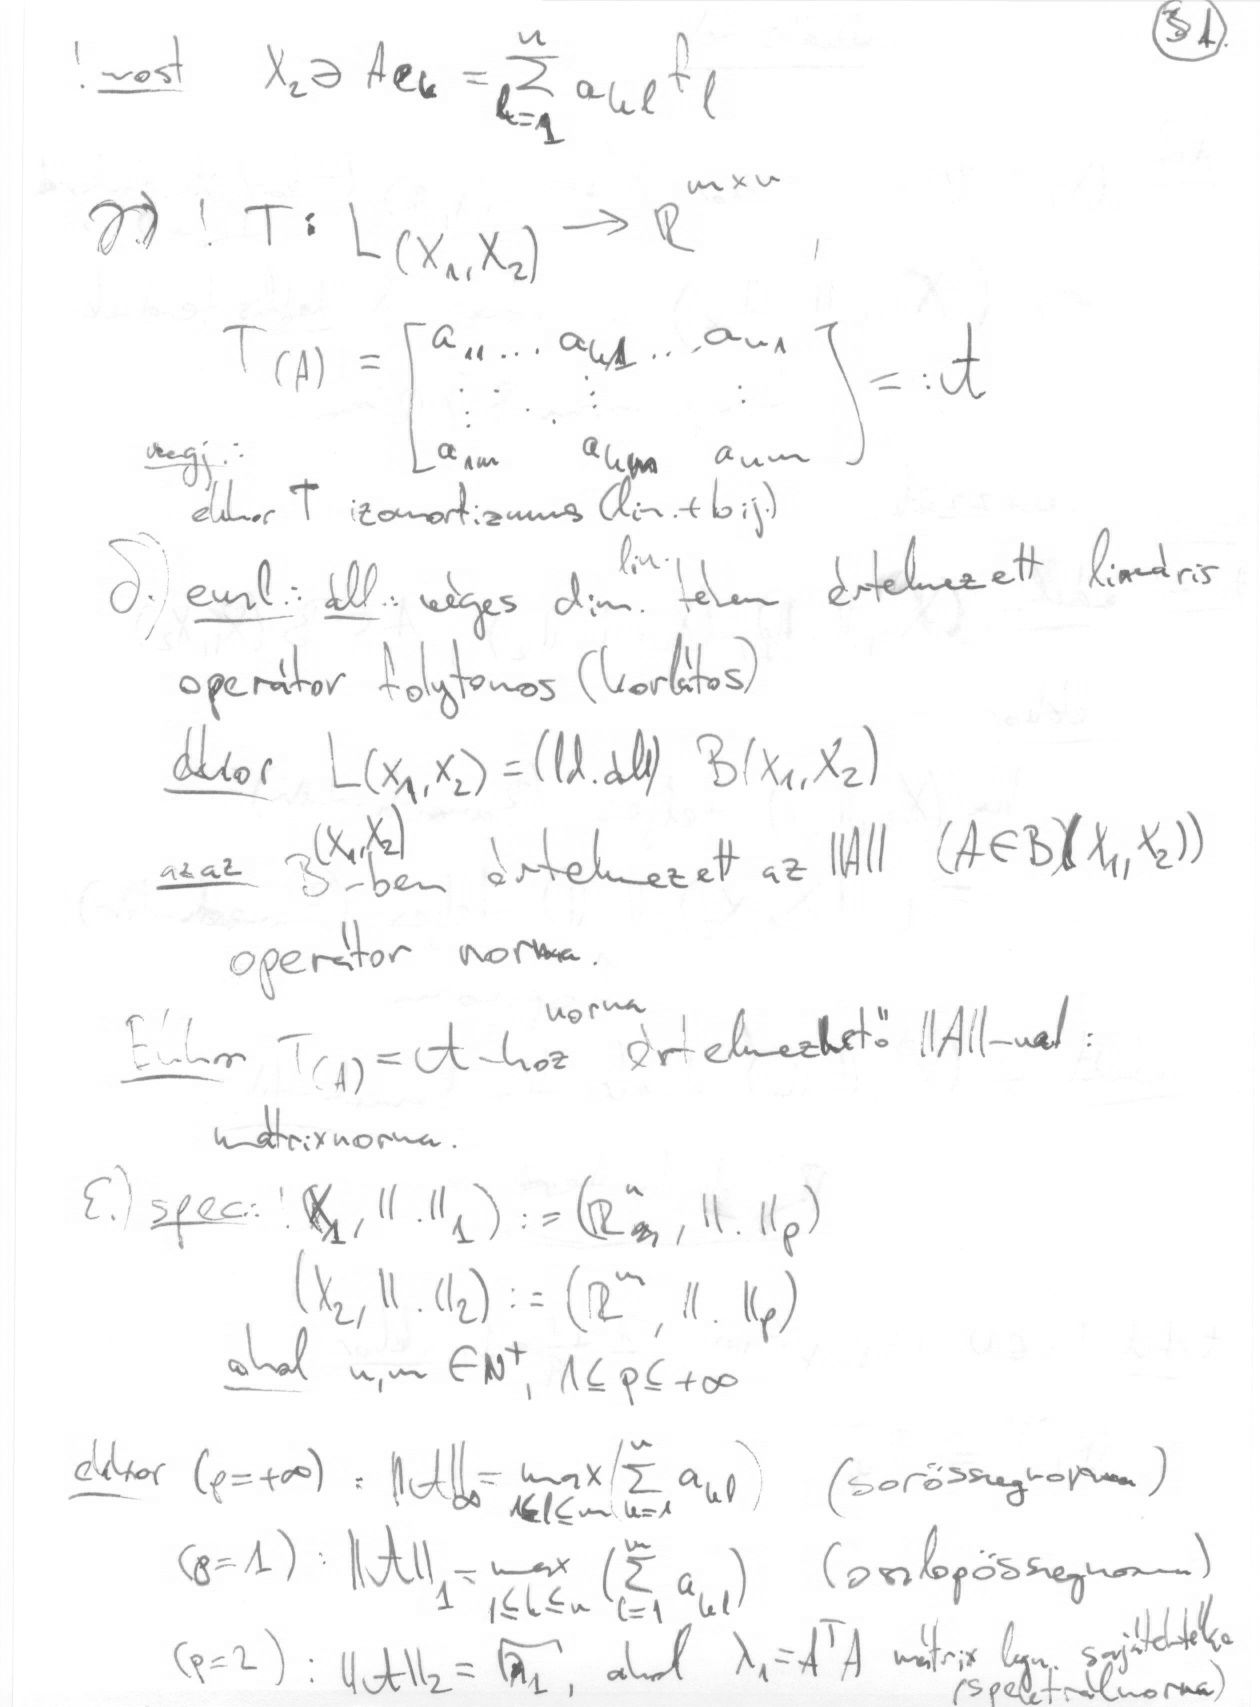 31.
! most X₂ ∋ Aeₖ = ∑ₗ₌₁ᵐ aₖₗ fₗ
γ.) ! T : L(X₁, X₂) → ℝᵐˣⁿ
T(A) = [ a₁₁ ... aₖ₁ ... aₙ₁
⋮ ⋱ ⋮ ⋮
a₁ₘ aₖₘ aₙₘ ] =: 𝒜
megj.:
ekkor T izomorfizmus (lin. + bij.)
δ.) eml.: áll.: véges dim. lin. téren értelmezett lineáris
operátor folytonos (korlátos)
ekkor L(X₁, X₂) = (ld. áll) B(X₁, X₂)
azaz B(X₁, X₂)-ben értelmezett az ||A|| (A ∈ B(X₁, X₂))
operátor norma.
Ekkor T(A) = 𝒜-hoz norma értelmezhető ||A||-val :
mátrixnorma.
ε.) spec.: ! (X₁, ||.||₁) := (ℝⁿ, ||.||ₚ)
(X₂, ||.||₂) := (ℝᵐ, ||.||ₚ)
ahol n, m ∈ N⁺, 1 ≤ p ≤ +∞
ekkor (p=+∞) : ||𝒜||∞ = max 1≤l≤m (∑ₖ₌₁ⁿ aₖₗ) (sorösszegnorma)
(p=1) : ||𝒜||₁ = max 1≤k≤n (∑ₗ₌₁ᵐ aₖₗ) (oszlopösszegnorma)
(p=2) : ||𝒜||₂ = √λ₁, ahol λ₁ = AᵀA mátrix lgn. sajátértéke
(spektrálnorma)